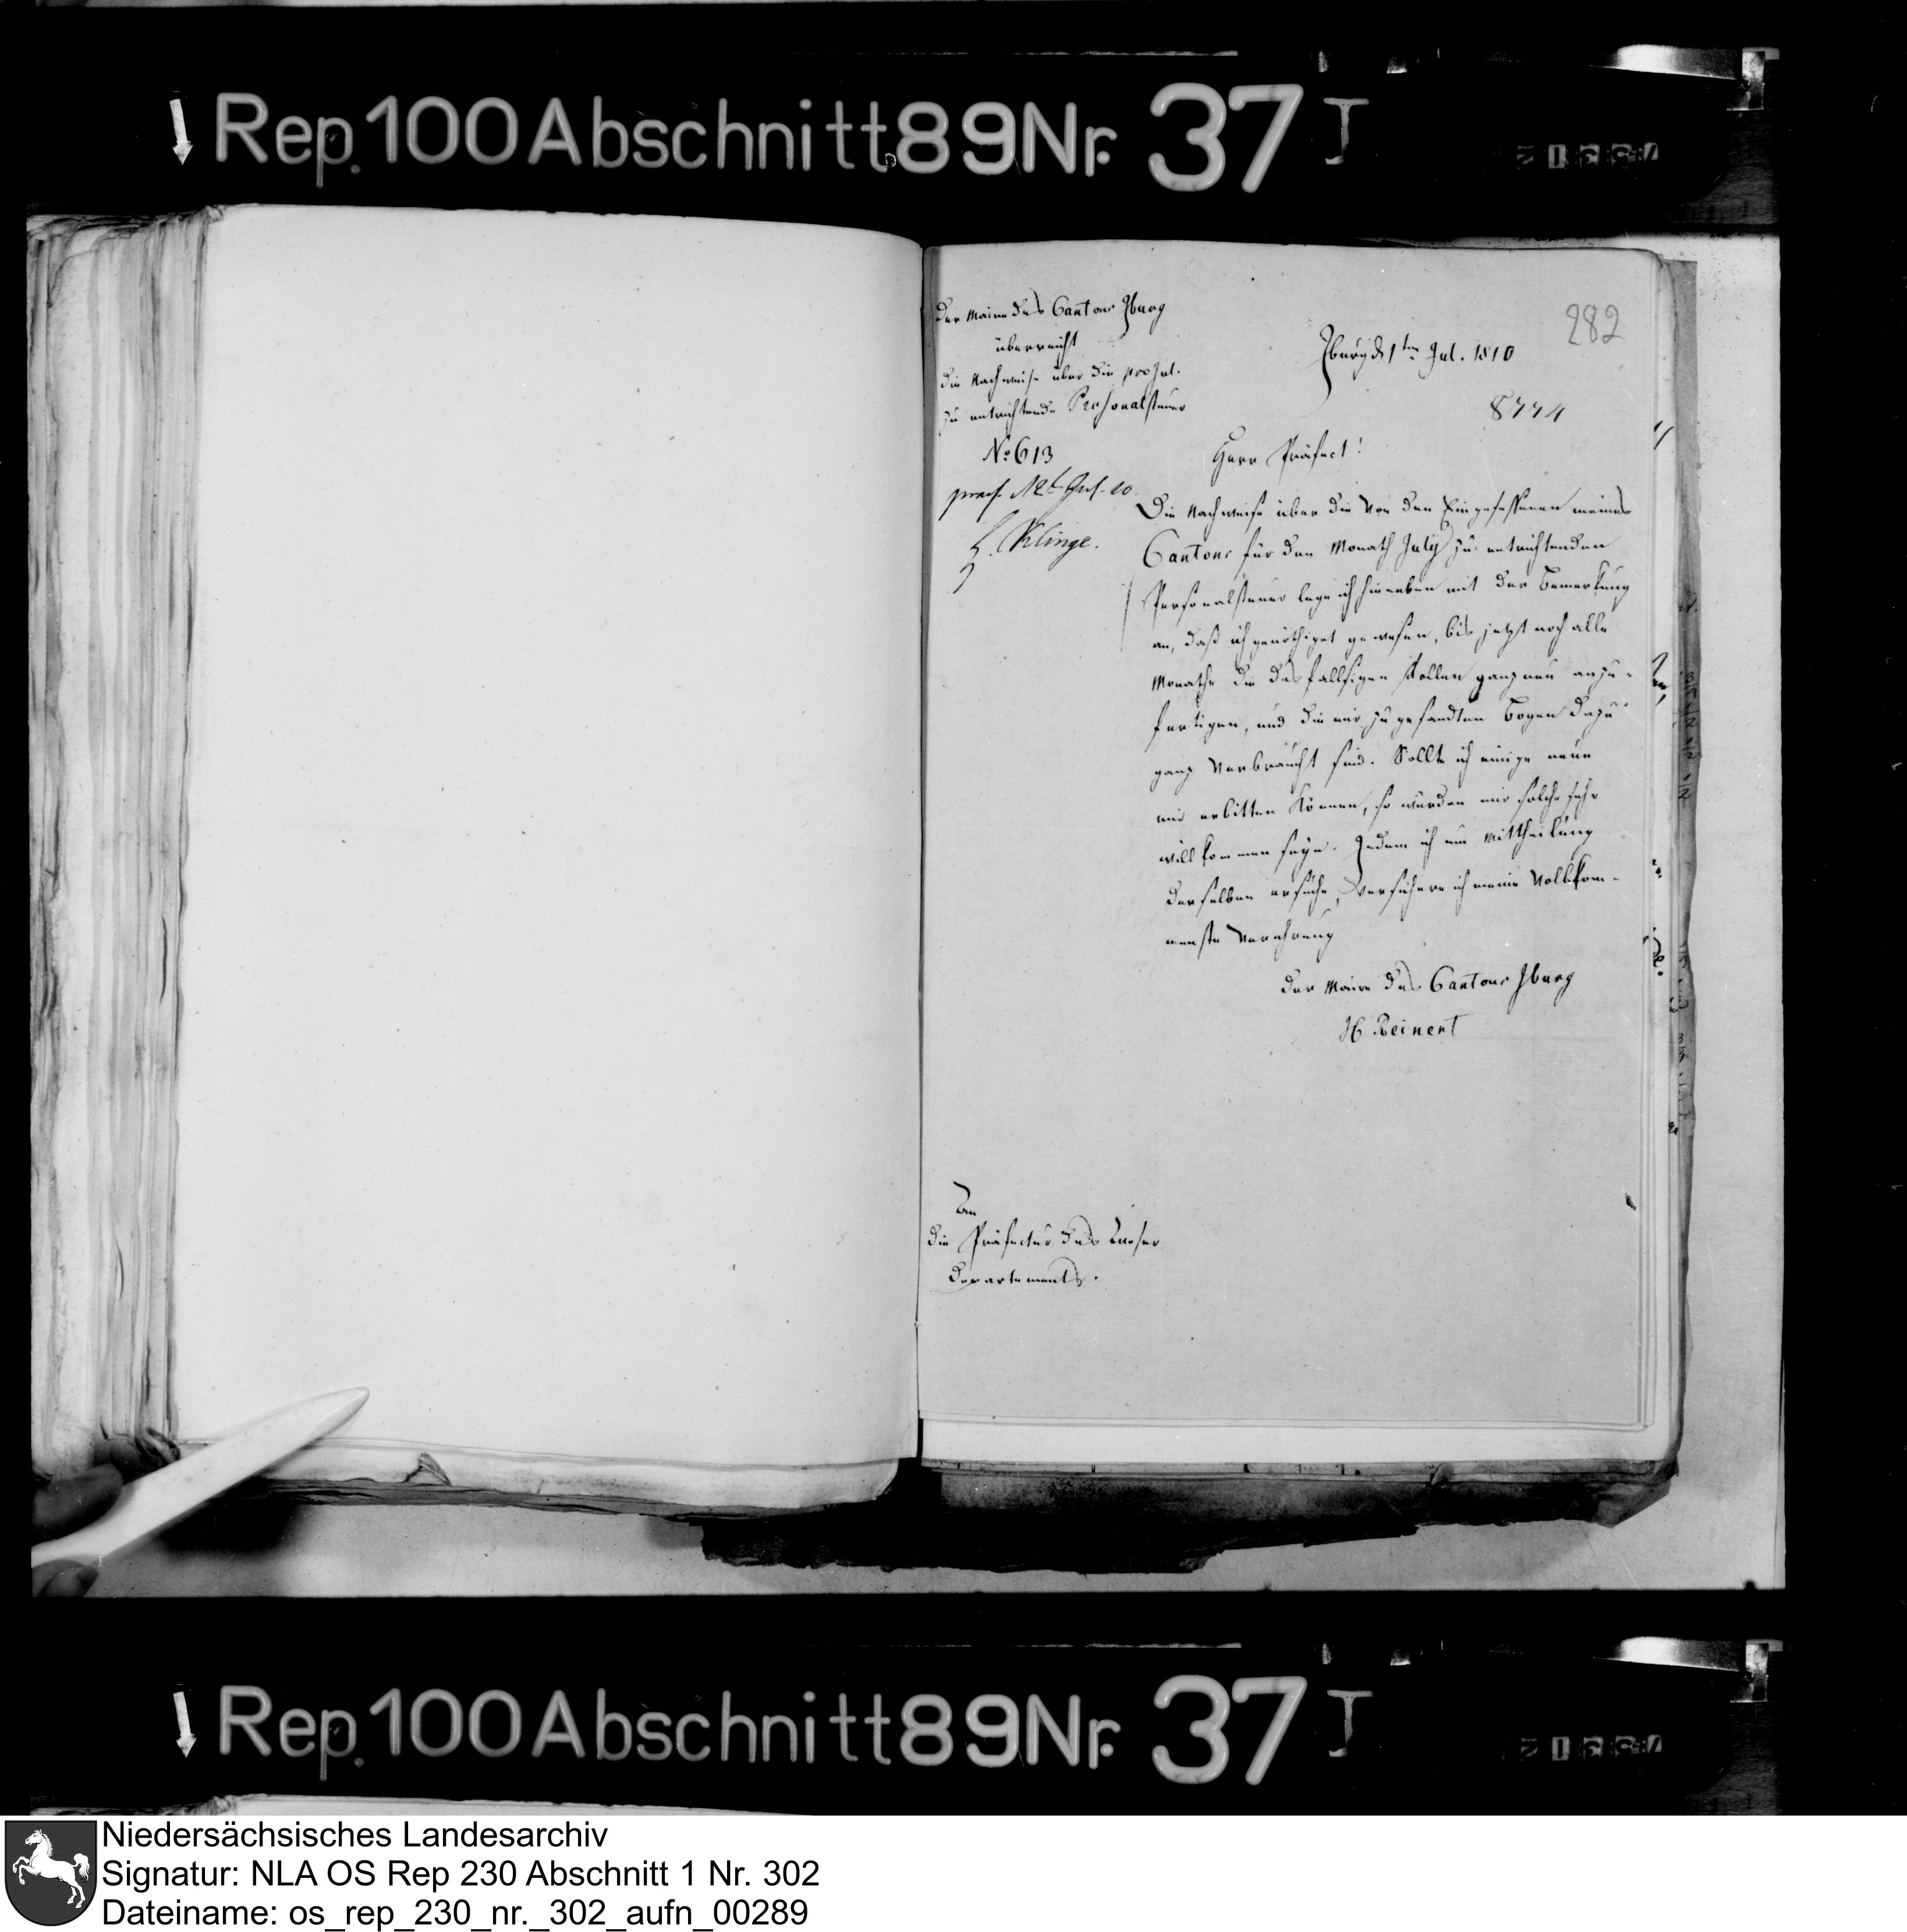 Rep. 100 Abschnitt 89 Nr. 37 I
282
Der Maire des Cantons Iburg
überreicht
die Nachweise über die pro Jul.
zu entrichtende Personalsteuer
No 613
praes. 12t Jul. 10
Klinge.
Iburg d 1ten Jul. 1810
Herr Präfect!
Die Nachweise über die von den Eingesessenen meines
Cantons für den Monath July zu entrichtenden
Personalsteuer lege ich hierneben mit der Bemerkung
an, daß ich genöthiget gewesen, bis jetzt noch alle
Monathe die desfallsigen Rollen ganz neu anzu-
fertigen, und die mir zugesandten Bogen dazu
ganz verbraucht sind. Sollte ich einige neue
mir erbitten können, so würden mir solche sehr
willkommen seyn. Indem ich um Mittheilung
derselben ersuche, versichere ich meine vollkom-
menste Verehrung
Der Maire des Cantons Iburg
H Reinert
An
die Präfectur des Weser
Departements.
Rep. 100 Abschnitt 89 Nr. 37 I
Niedersächsisches Landesarchiv
Signatur: NLA OS Rep 230 Abschnitt 1 Nr. 302
Dateiname: os_rep_230_nr._302_aufn_00289